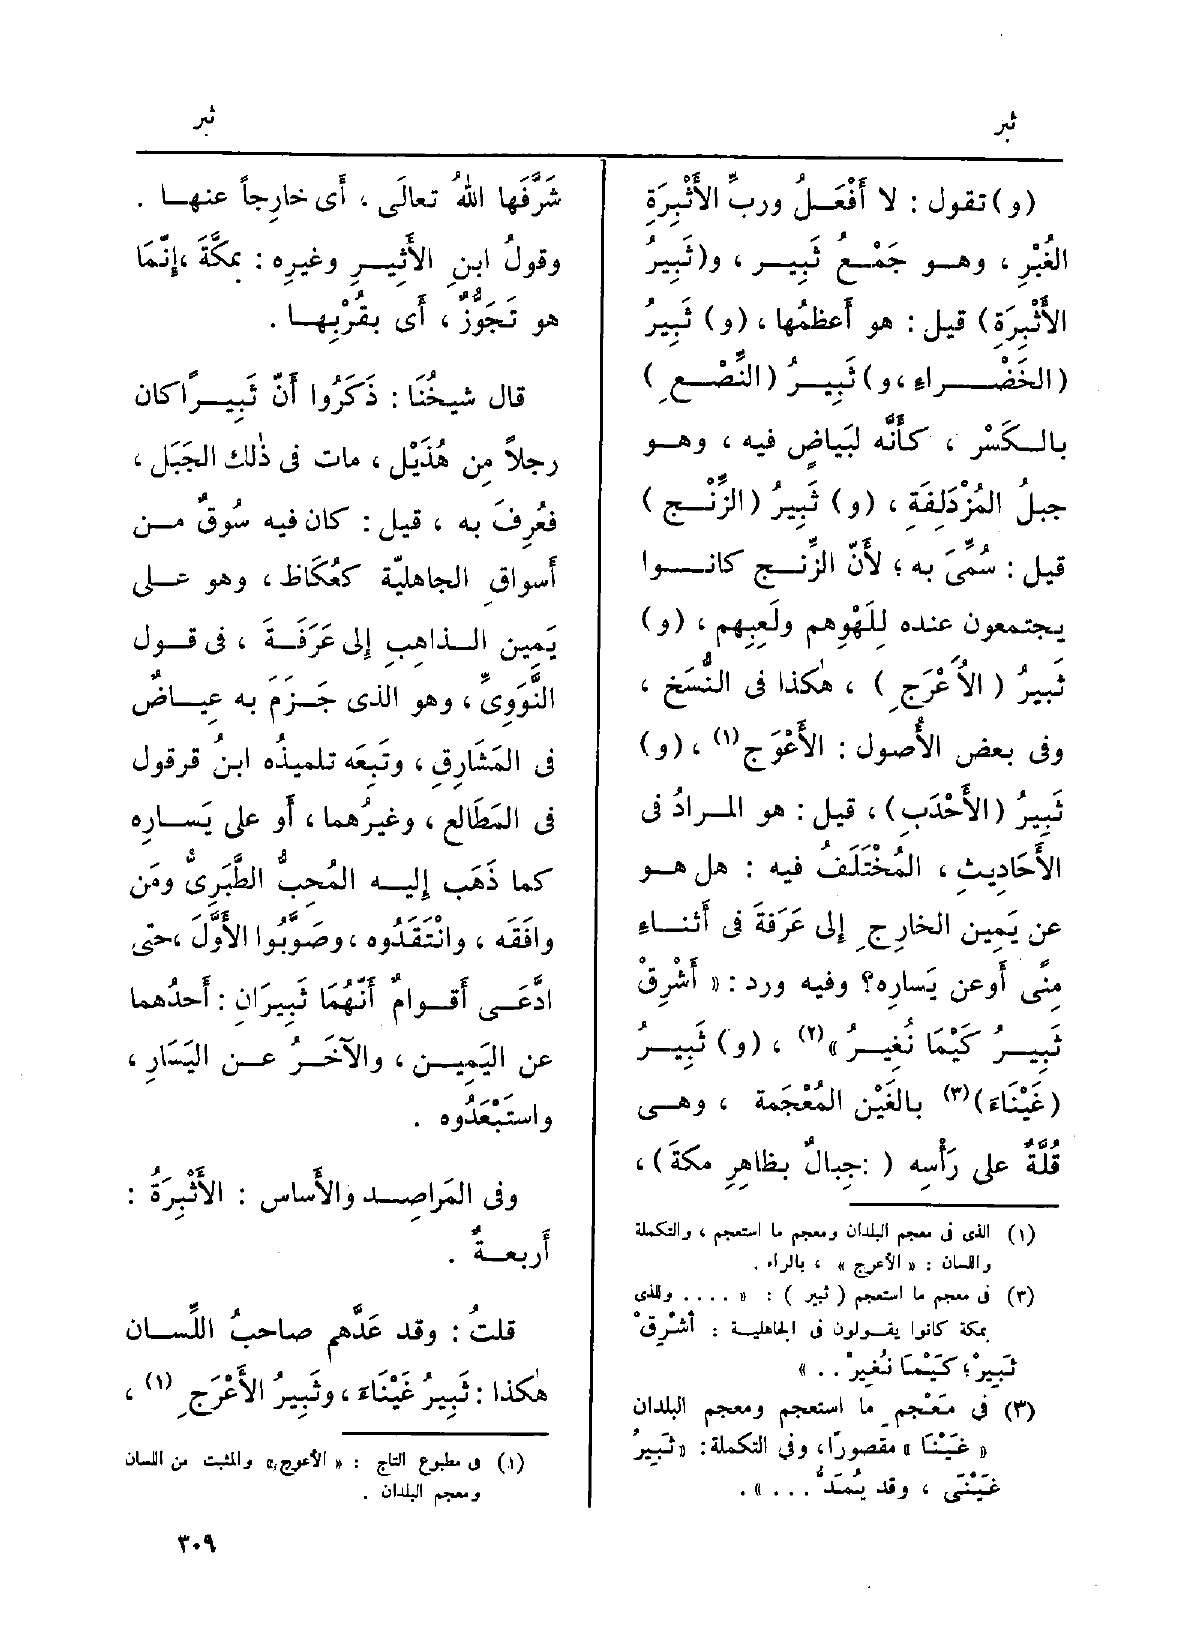 ثبر
ثبر
(و) تقول : لا أَفْعَلُ وربِّ الأَثْبِرَةِ
الغُبْرِ ، وهو جَمْعُ ثَبِير ، و(ثَبِيرُ
الأَثْبِرَةِ) قيل : هو أَعظمُها ، (و) ثَبِيرُ
(الخَضْراءِ ، و) ثَبِيرُ (النِّصْعِ)
بالكَسْر ، كأَنَّه لبَياضٍ فيه ، وهو
جبلُ المُزْدَلِفَةِ ، (و) ثَبِيرُ (الزِّنْج)
قيل : سُمِّىَ به ؛ لأَنّ الزِّنج كانوا
يجتمعون عنده لِلَهْوِهم ولَعِبِهم ، (و)
ثَبِيرُ ( الأَعْرَجِ ) ، هٰكذا فى النُّسَخ ،
وفى بعض الأُصول : الأَعْوَج (١) ، (و)
ثَبِيرُ (الأَحْدَبِ) ، قيل : هو المرادُ فى
الأَحَاديثِ ، المُخْتَلَفُ فيه : هل هو
عن يَمِين الخارِجِ إِلى عَرَفَةَ فى أَثناءِ
مِنًى أَو عن يَسارِه؟ وفيه ورد : « أَشْرِقْ
ثَبِيرُ كَيْمَا نُغِيرُ » (٢) ، (و) ثَبِيرُ
(غَيْنَاءَ) (٣) بالغَيْن المُعْجَمة ، وهى
قُلَّةٌ على رَأْسِه ( : جِبالٌ بظاهِرِ مكةَ) ،
(١) الذى فى معجم البلدان ومعجم ما استعجم ، والتكملة
واللسان : « الأعرج » ، بالراء .
(٢) فى معجم ما استعجم ( ثبير ) : « .... والذى
بمكة كانوا يقولون فى الجاهلية : أَشْرِقْ
ثَبِيرْ ؛ كَيْمَا نُغِيرْ .. »
(٣) فى مَعْجم ما استعجم ومعجم البلدان
« غَيْنَا » مقصورًا ، وفى التكملة : « ثَبِيرُ
غَيْنَى ، وقد يُمَدُّ .... » .
شَرَّفَها اللهُ تعالَى ، أَى خارِجاً عنها .
وقولُ ابنِ الأَثِيرِ وغيرِه : بمكَّةَ ، إِنَّمَا
هو تَجَوُّزٌ ، أَى بقُرْبِها .
قال شيخُنَا : ذَكَرُوا أَنّ ثَبِيراً كان
رجلاً مِن هُذَيْل ، مات فى ذٰلك الجَبَل ،
فعُرِفَ به ، قيل : كان فيه سُوقٌ من
أَسواقِ الجاهليّة كعُكَاظَ ، وهو على
يَمِينِ الذاهِبِ إِلى عَرَفَةَ ، فى قول
النَّوَوِىِّ ، وهو الذى جَزَمَ به عِياضٌ
فى المَشَارِقِ ، وتَبِعَه تلميذُه ابنُ قرقول
فى المَطَالع ، وغيرُهما ، أَو على يَسارِه
كما ذَهَب إِليه المُحِبُّ الطَّبَرِىُّ ومَن
وافَقَه ، وانْتَقَدُوه ، وصَوَّبُوا الأَوَّلَ ، حتى
ادَّعَى أَقوامٌ أَنَّهُمَا ثَبِيرَانِ : أَحدُهما
عن اليَمِينِ ، والآخَرُ عن اليَسَارِ ،
واسْتَبْعَدُوه .
وفى المَراصِدِ والأَساسِ : الأَثْبِرَةُ :
أَربعةٌ .
قلتُ : وقد عَدَّهم صاحبُ اللِّسان
هٰكذا : ثَبِيرُ غَيْنَاءَ ، وثَبِيرُ الأَعْرَجِ (١) ،
(١) فى مطبوع التاج : « الأعوج » والمثبت من اللسان
ومعجم البلدان .
٣٠٩